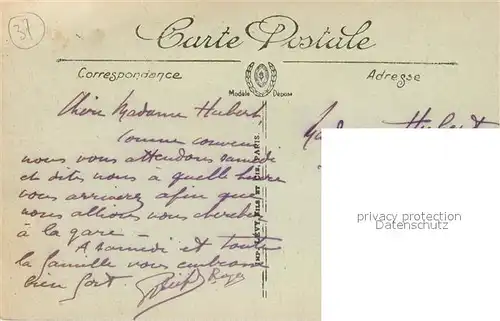 37
Carte Postale
Correspondance
Adresse
Modèle Déposé
Chère Madame Hubert,
Comme convenu
nous vous attendons samedi
et dites nous à quelle heure
vous arriverez afin que
nous allions vous chercher
à la gare -
A samedi et toute
la famille vous embrasse
bien fort.
Roger
IMP. LÉVY, FILS ET CIE, PARIS.
Hubert
privacy protection
Datenschutz